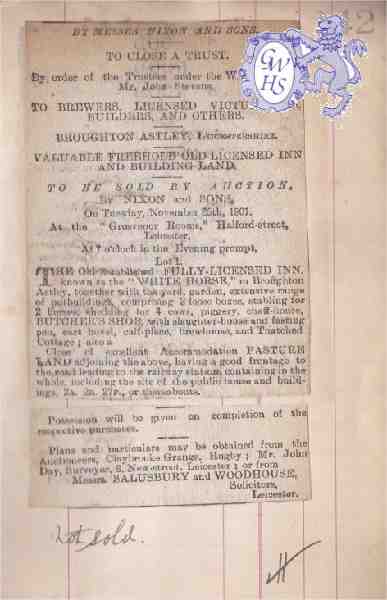 42
GWHS
BY MESSRS NIXON AND SONS.
TO CLOSE A TRUST.
By order of the Trustees under the W
Mr. John Stevens,
TO BREWERS, LICENSED VICTU
BUILDERS, AND OTHERS.
BROUGHTON ASTLEY, LEICESTERSHIRE.
VALUABLE FREEHOLD OLD LICENSED INN
AND BUILDING LAND.
TO BE SOLD BY AUCTION,
By NIXON and SONS,
On Tuesday, November 1901.
At the "Grosvenor Rooms," Halford-street,
Leicester,
At 7 o'clock in the Evening prompt,
Lot 1.
THE Old-Established FULLY-LICENSED INN,
known as the "WHITE HORSE," in Broughton
Astley, together with the yard, garden, extensive range
of outbuildings, comprising 2 loose boxes, stabling for
2 horses, shedding for 4 cows, piggery, chaff-house,
BUTCHER'S SHOP, with slaughter-house and fasting
pen, cart hovel, calf-place, brewhouse, and Thatched
Cottage; also a
Close of excellent Accommodation PASTURE
LAND adjoining the above, having a good frontage to
the road leading to the railway station, containing in the
whole, including the site of the public house and build-
ings, 2a. 2r. 27p., or thereabouts.
Possession will be given on completion of the
respective purchases.
Plans and particulars may be obtained from the
Auctioneers, Claybrooke Grange, Rugby; Mr. John
Day, Surveyor, 8, New-street, Leicester; or from
Messrs. SALUSBURY and WOODHOUSE,
Solicitors,
Leicester.
Not sold.